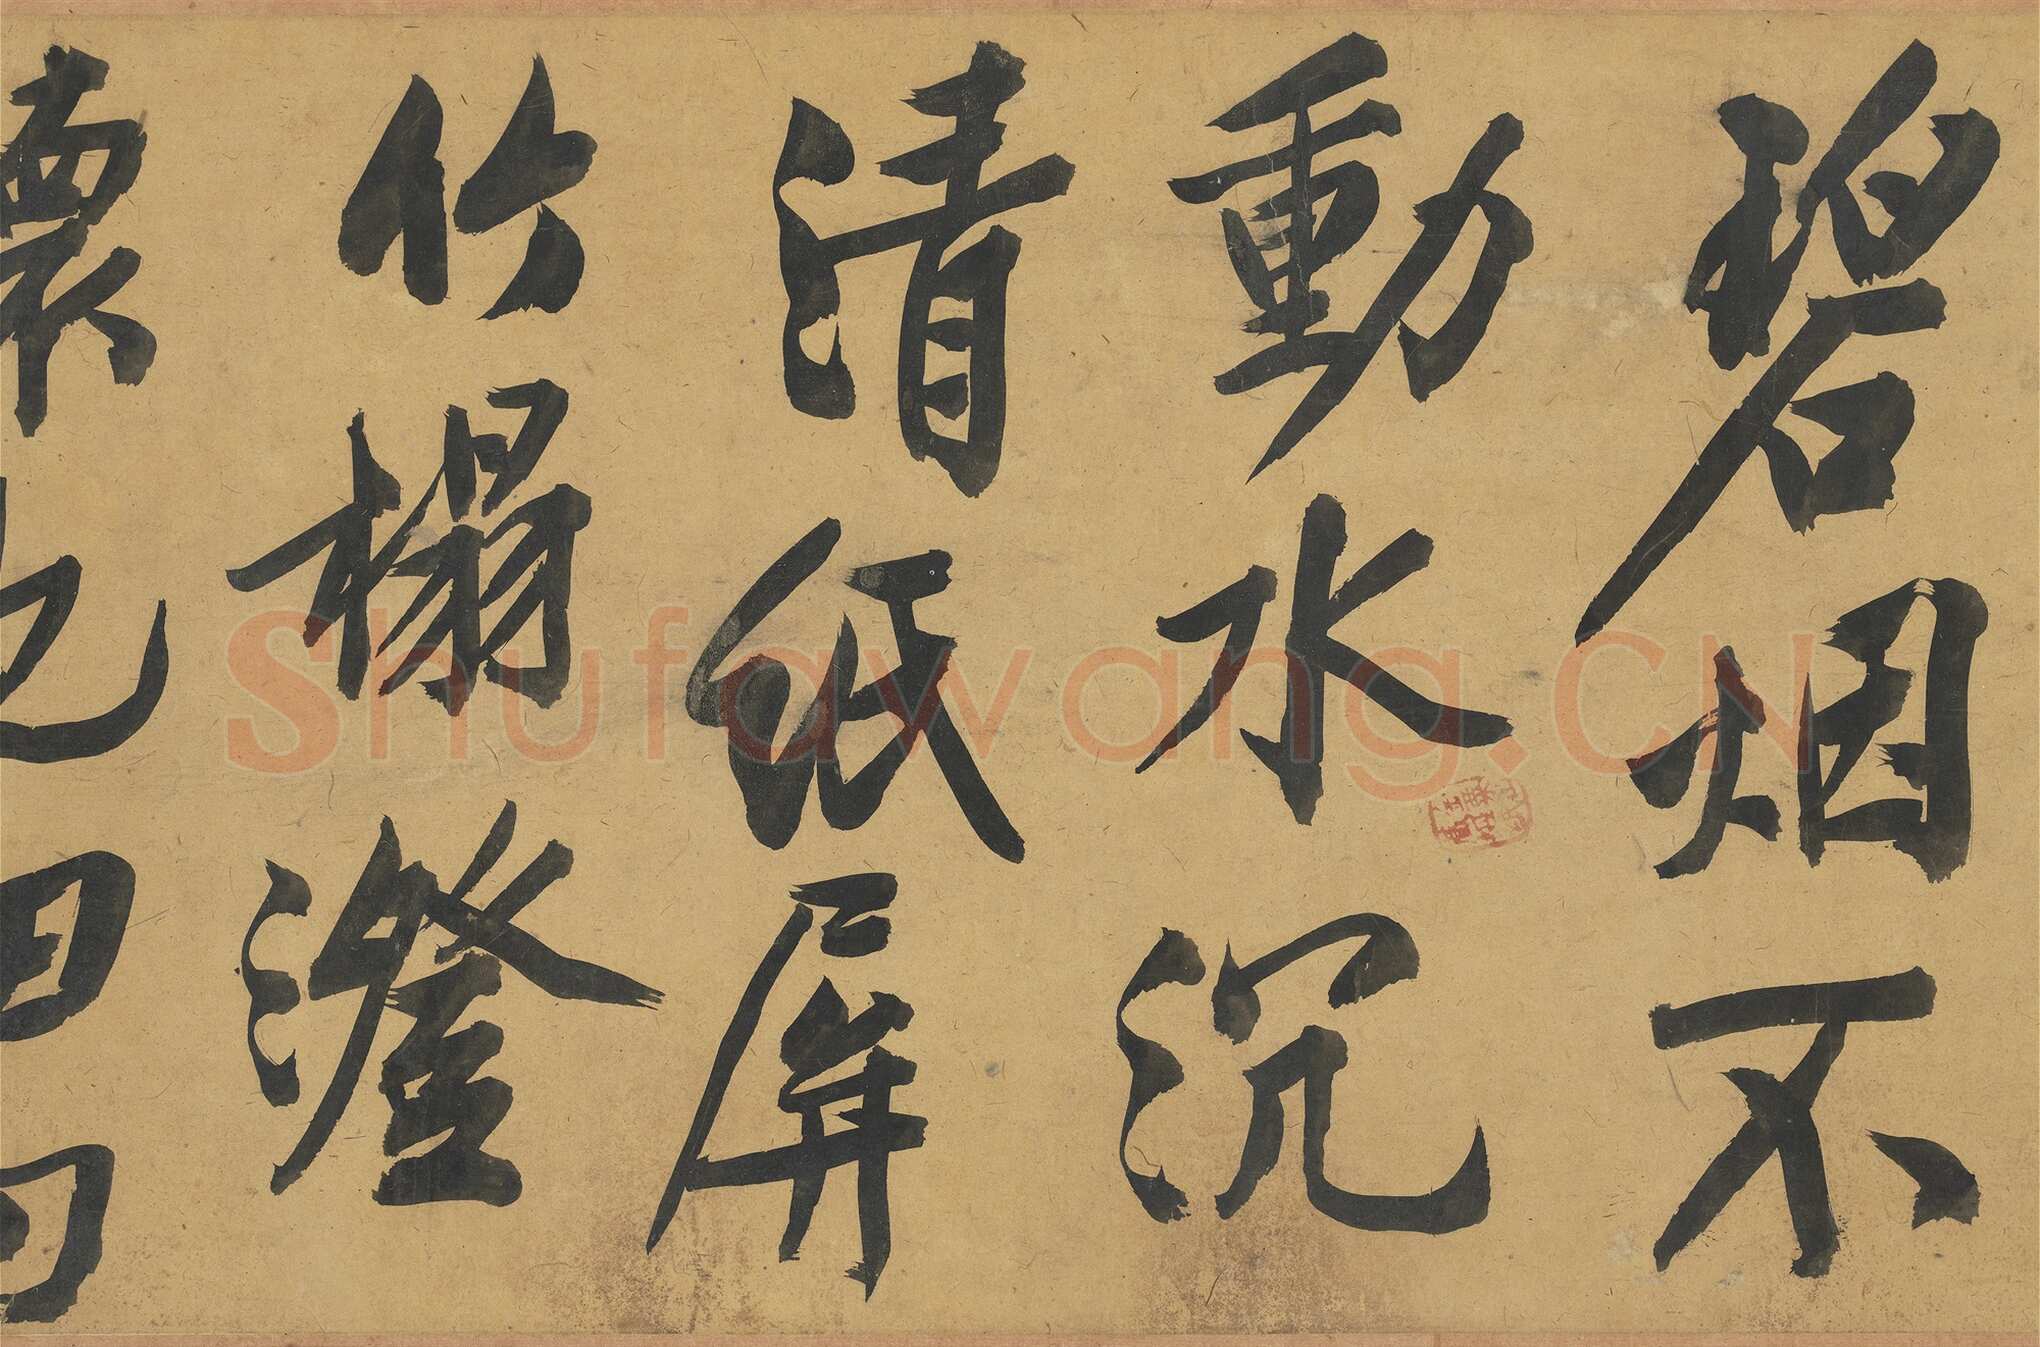 碧烟不
動水沉
清紙屏
竹榻澄
懷
Shufawang.CN